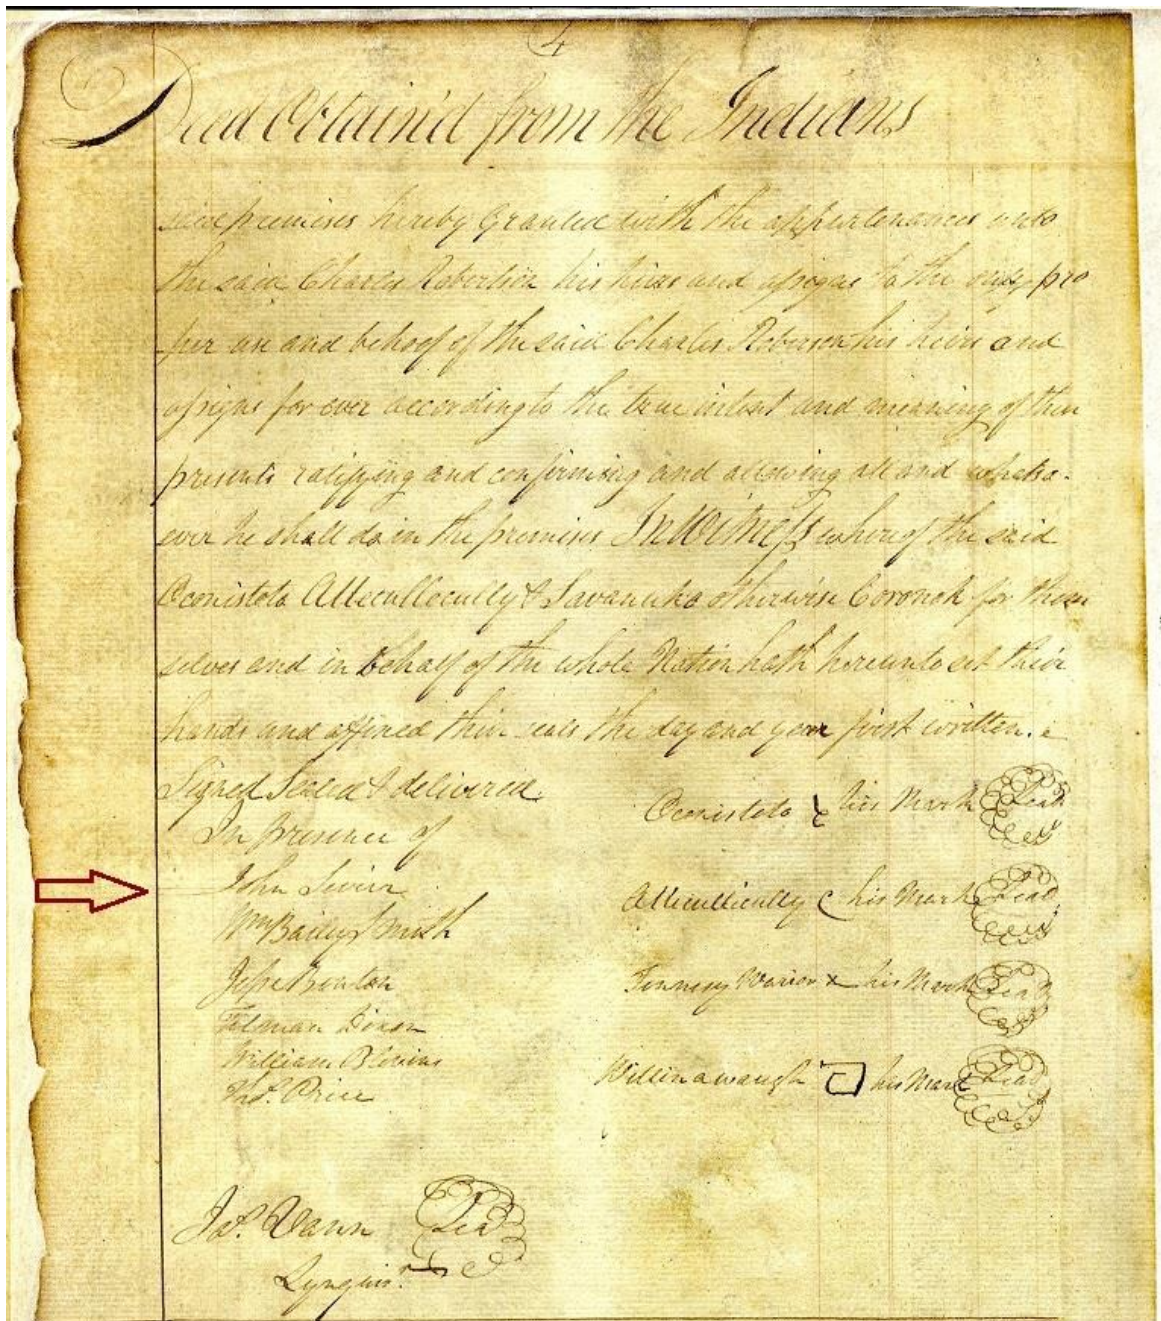 4
Deed Obtain'd from the Indians
said premises hereby Granted with the appurtenances unto
the said Charles Robertson his heirs and assigns to the only pro
per use and behoof of the said Charles Roberson his heirs and
assigns for ever according to the true intent and meaning of these
presents ratifying and confirming and allowing all and whatso-
ever he shall do in the premises In Witness whereof the said
Oconistoto Attecullecully & Savanuka otherwise Coronoh for them
selves and in behalf of the whole Nation hath hereunto set their
hands and affixed their seals the day and year first written.
Signed Sealed & delivered
In presence of
Oconistoto his Mark Seal
John Sevier
Attecullecully his Mark Seal
Wm Bailey Smith
Jesse Benton
Tennesy Warior x his Mark Seal
Tilman Dixon
William Blevins
Thos. Price
Willinawaugh his Mark Seal
Jos. Vann Seal
Lynguisr.